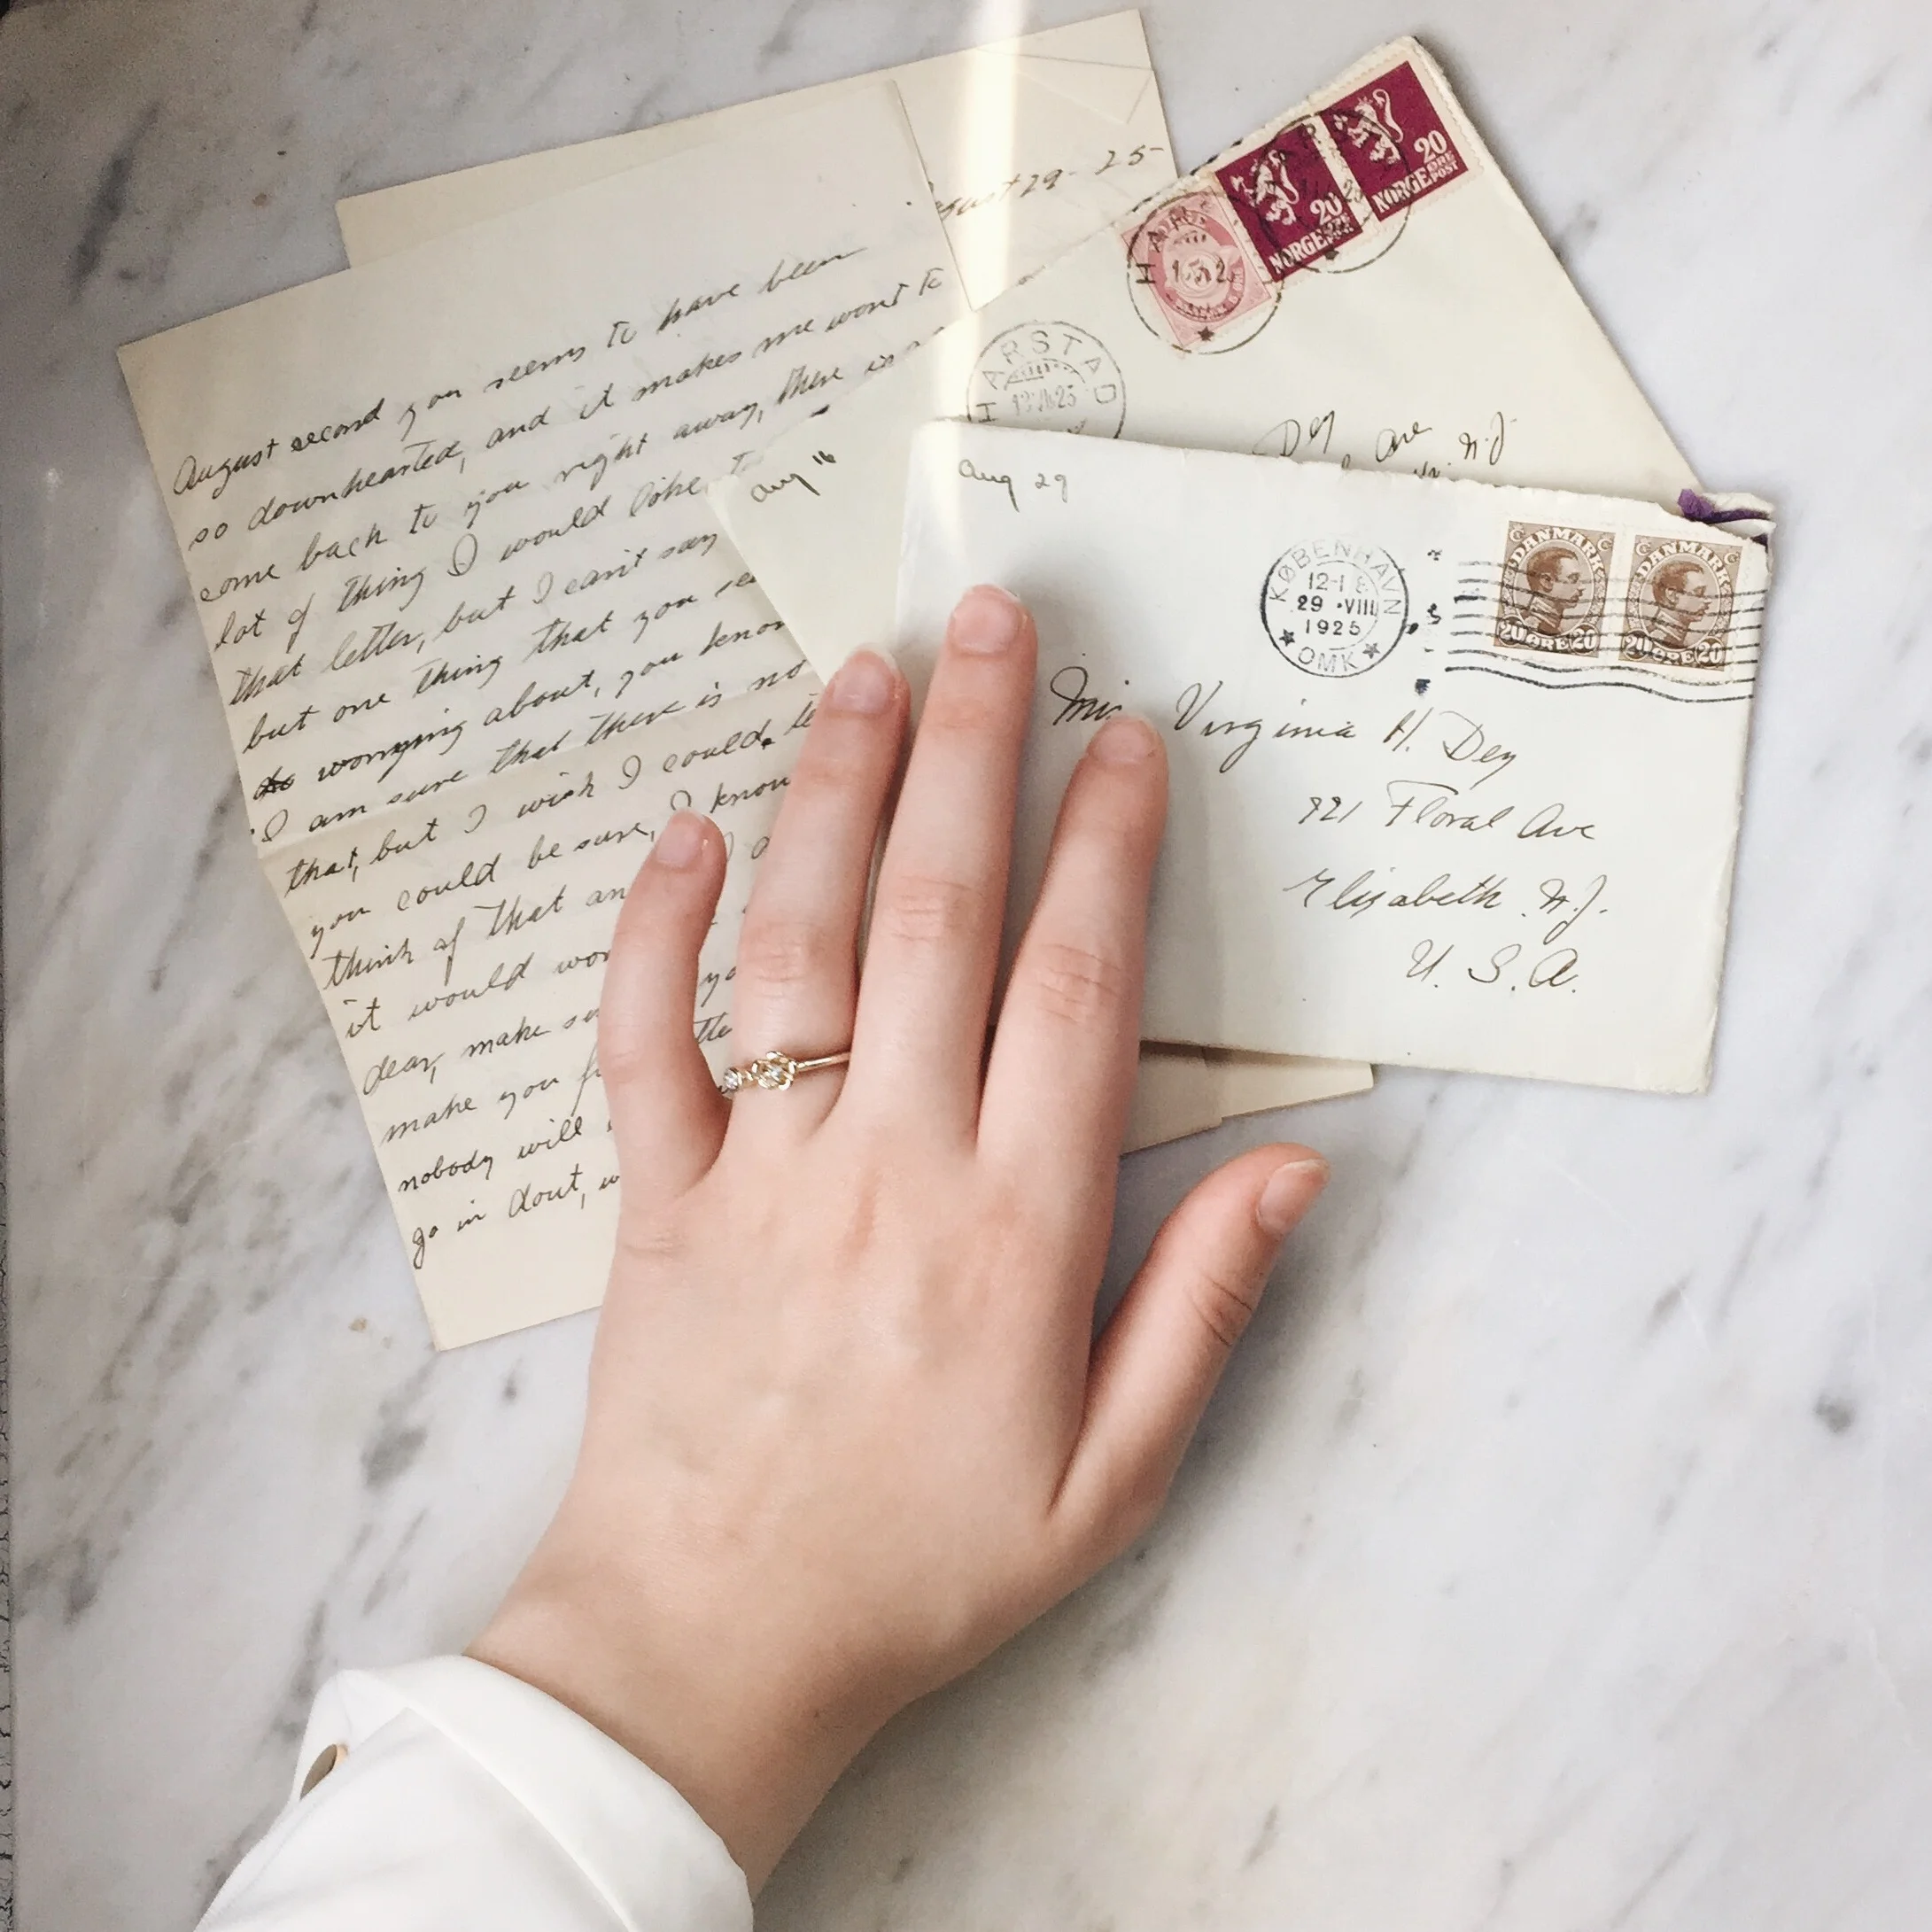 gust 29 - 25-
August second you seems to have been
so downhearted, and it makes me wont to
come back to you right away, there is a
lot of thing I would like to
that letter, but I can't say
but one thing that you se
worrying about, you know
I am sure that there is no
that, but I wish I could, te
you could be sure, I know
think of that an
it would wor
dear, make su yo
make you f tte
nobody will
go in dout, w
HARSTAD
NORGE 20 ØRE POST
NORGE 20 ØRE POST
HARSTAD
Aug 16
Dey
Ave
N.J.
Aug 29
KØBENHAVN
12-1 E
29 •VIII
1925
★ OMK ★
DANMARK
20 ØRE 20
DANMARK
20 ØRE 20
Virginia H. Dey
921 Floral Ave
Elizabeth N.J.
U. S. A.